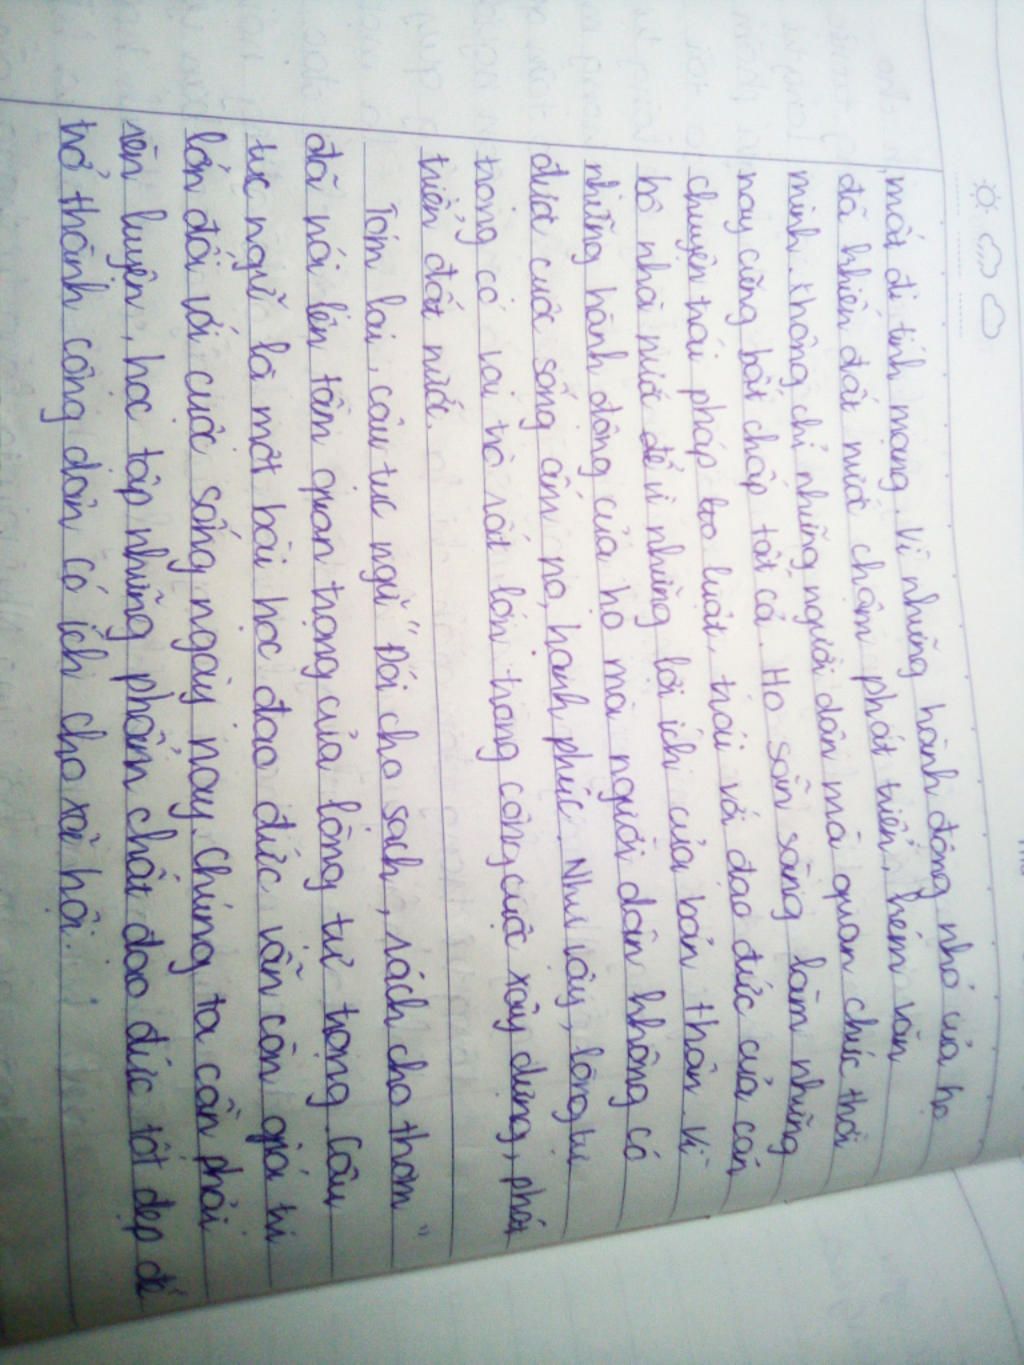 mất đi tính mạng. Vì những hành động nhỏ của họ
đã khiến đất nước chậm phát triển, kém văn
minh. Không chỉ những người dân mà quan chức thời
nay cũng bất chấp tất cả. Họ sẵn sàng làm những
chuyện trái pháp luật, trái với đạo đức của cán
bộ nhà nước để vì những lợi ích của bản thân. Vì
những hành động của họ mà người dân không có
được cuộc sống ấm no, hạnh phúc. Như vậy, lòng tự
trọng có vai trò rất lớn trong công cuộc xây dựng, phát
triển đất nước.
Tóm lại, câu tục ngữ "Đói cho sạch, rách cho thơm"
đã nói lên tầm quan trọng của lòng tự trọng. Câu
tục ngữ là một bài học đạo đức vẫn còn giá trị
lớn đối với cuộc sống ngày nay. Chúng ta cần phải
rèn luyện, học tập những phẩm chất đạo đức tốt đẹp để
trở thành công dân có ích cho xã hội.